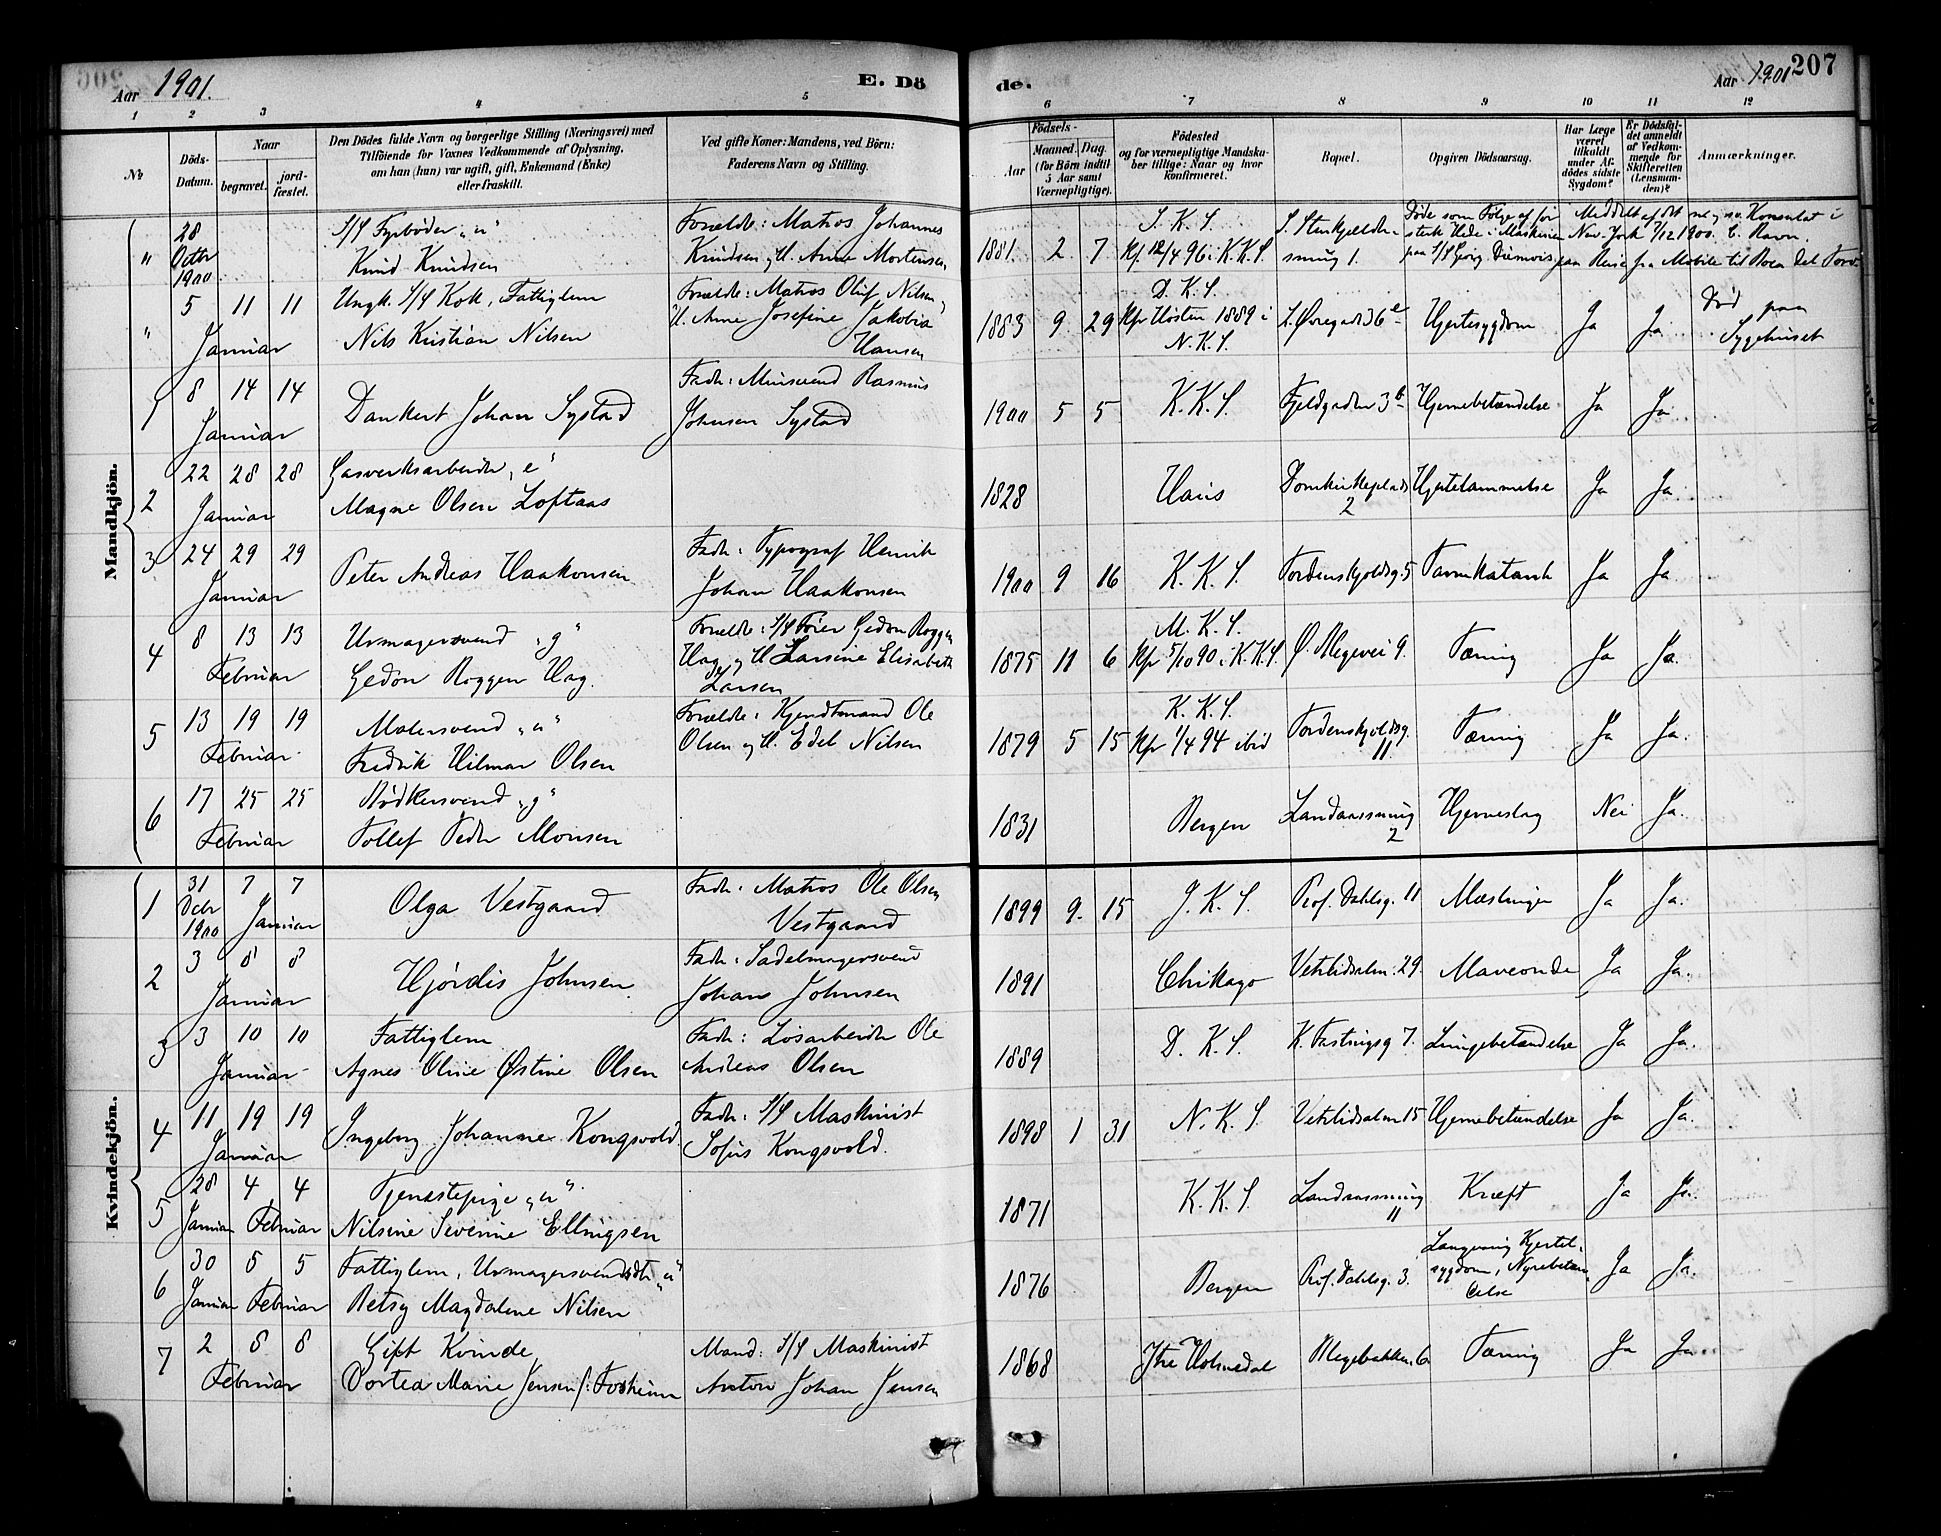 Aar 1901.
E. Dö
de.
Aar 1901
207
1 2 3 4 5 6 7 8 9 10 11 12
No
Döds-Datum.
Naar
begravet.
jord-fæstet.
Den Dödes fulde Navn og borgerlige Stilling (Næringsvei) med
Tilföiende for Voxnes Vedkommende af Oplysning,
om han (hun) var ugift, gift, Enkemand (Enke)
eller fraskilt.
Ved gifte Koner: Mandens, ved Börn:
Faderens Navn og Stilling.
Födsels-
Aar
Maaned. Dag.
(for Börn indtil
5 Aar samt
Værnepligtige).
Födested
og for værnepligtige Mandska-
ber tillige: Naar og hvor
konfirmeret.
Bopæl.
Opgiven Dödsaarsag.
Har Læge
været
tilkaldt
under Af-
dödes sidste
Sygdom?
Er Dödsfal-
det anmeldt
af Vedkom-
mende for
Skifteretten
(Lensman-
den)?
Anmærkninger.
Mandkjön.
" 28 Octbr 1900
S/S Fyrbøder "u"
Knud Knudsen
Forældre: Matros Johannes
Knudsen og H. Anne Mortensen
1881 2 7
J. K. S.
Kf. 12/4 96 i K.K.S.
Døde som Følge af for
sterk Hede i Maskinen
Meddelt af det sv. Konsulat i
New York 7/12 1900. C. Ravn.
paa Reise fra Mobile til Boca del Toro
" 5 11 11 Januar
Ungk. S/S Kok, Fattiglem
Nils Kristian Nilsen
Forældre: Matros Oluf Nilsen,
H. Anne Josefine Jakobia
Hansen
1883 9 29
D. K. S.
Kfr Høsten 1889 i
N. K. S.
L. Øvregade 36
Hjertesygdom
Ja Ja
Død paa
Sygehuset
1 8 14 14 Januar
Dankert Johan Systad
Fader: Minsvend Rasmus
Johnsen Systad
1900 5 5
K. K. S.
Fjeldgaden 3
Hjernebetændelse
Ja Ja
2 22 28 28 Januar
Gasverksarbeider "e"
Magne Olsen Loftaas
1828
Haus
Domkirkeplads
2
Hjertelammelse
Ja Ja
3 24 29 29 Januar
Peter Andreas Haakonsen
Fader: Typograf Henrik
Johan Haakonsen
1900 9 16
K. K. S.
Tordenskjoldsg. 5
Tarmkatarrh
Ja Ja
4 8 13 13 Februar
Urmagersvend "g"
Gedon Roggen Hag.
Forældre: S/S Fører Gedon Roggen
Hag og H. Larsine Elisabeth
Larsen
1875 11 6
M. K. S.
Kfr 5/10 90 i K.K.S.
Ø. Blegevei 9.
Tæring
Ja Ja.
5 13 19 19 Februar
Malersvend "u"
Fredrik Hilmar Olsen
Forældre: Kjendtmand Ole
Olsen og H. Edel Nilsen
1879 5 15
K. K. S.
Kfr 1/4 94 ibid
Tordenskjoldsg.
11
Tæring
Ja Ja.
6 17 25 25 Februar
Bødkersvend "g"
Tollef Peder Monsen
1831
Bergen
Landaassmug
2
Hjerneslag
Nei Ja.
Kvindekjön.
1 31 Decbr 1900 7 7 Januar
Olga Vestgaard
Fader: Matros Ole Olsen
Vestgaard
1899 9. 15
J. K. S.
Prof. Dahlsg. 11
Mæslinger
Ja Ja.
2 3 8 8 Januar
Hjørdis Johnsen
Fader: Sadelmagersvend
Johan Johnsen
1891
Chikago
Vetrlidsalm. 29.
Maveonde
Ja Ja.
3 3 10 10 Januar
Fattiglem
Agnes Oline Østine Olsen
Fader: Løsarbeider Ole
Andreas Olsen
1889
D. K. S.
K. Fastingsg 7.
Lungebetændelse
Ja Ja.
4 11 19 19 Januar
Ingeborg Johanne Kongsvold.
Fader: S/S Maskinist
Sofus Kongsvold.
1898 1 31
N. K. S
Vetrlidsalm 15
Hjernebetændelse
Ja Ja.
5 28 Januar 4 4 Februar
Tjenestepige "u"
Nilsine Severine Ellingsen
1871
K. K. S.
Landaassmug
11
Kræft
Ja Ja.
6 30 Januar 5 5 Februar
Fattiglem, Urmagersvendsdtr "u"
Betsy Magdalene Nilsen
1876
Bergen
Prof. Dahlsg. 3.
Langvarig Kjertel-
sygdom, Nyrebetæn-
delse
Ja Ja.
7 2 8 8 Februar
Gift Kvinde
Dortea Marie Jensen f. Forheim
Mand: S/S Maskinist
Anton Johan Jensen
1868
Ytre Holmedal
Blegebakken 6
Tæring
Ja Ja